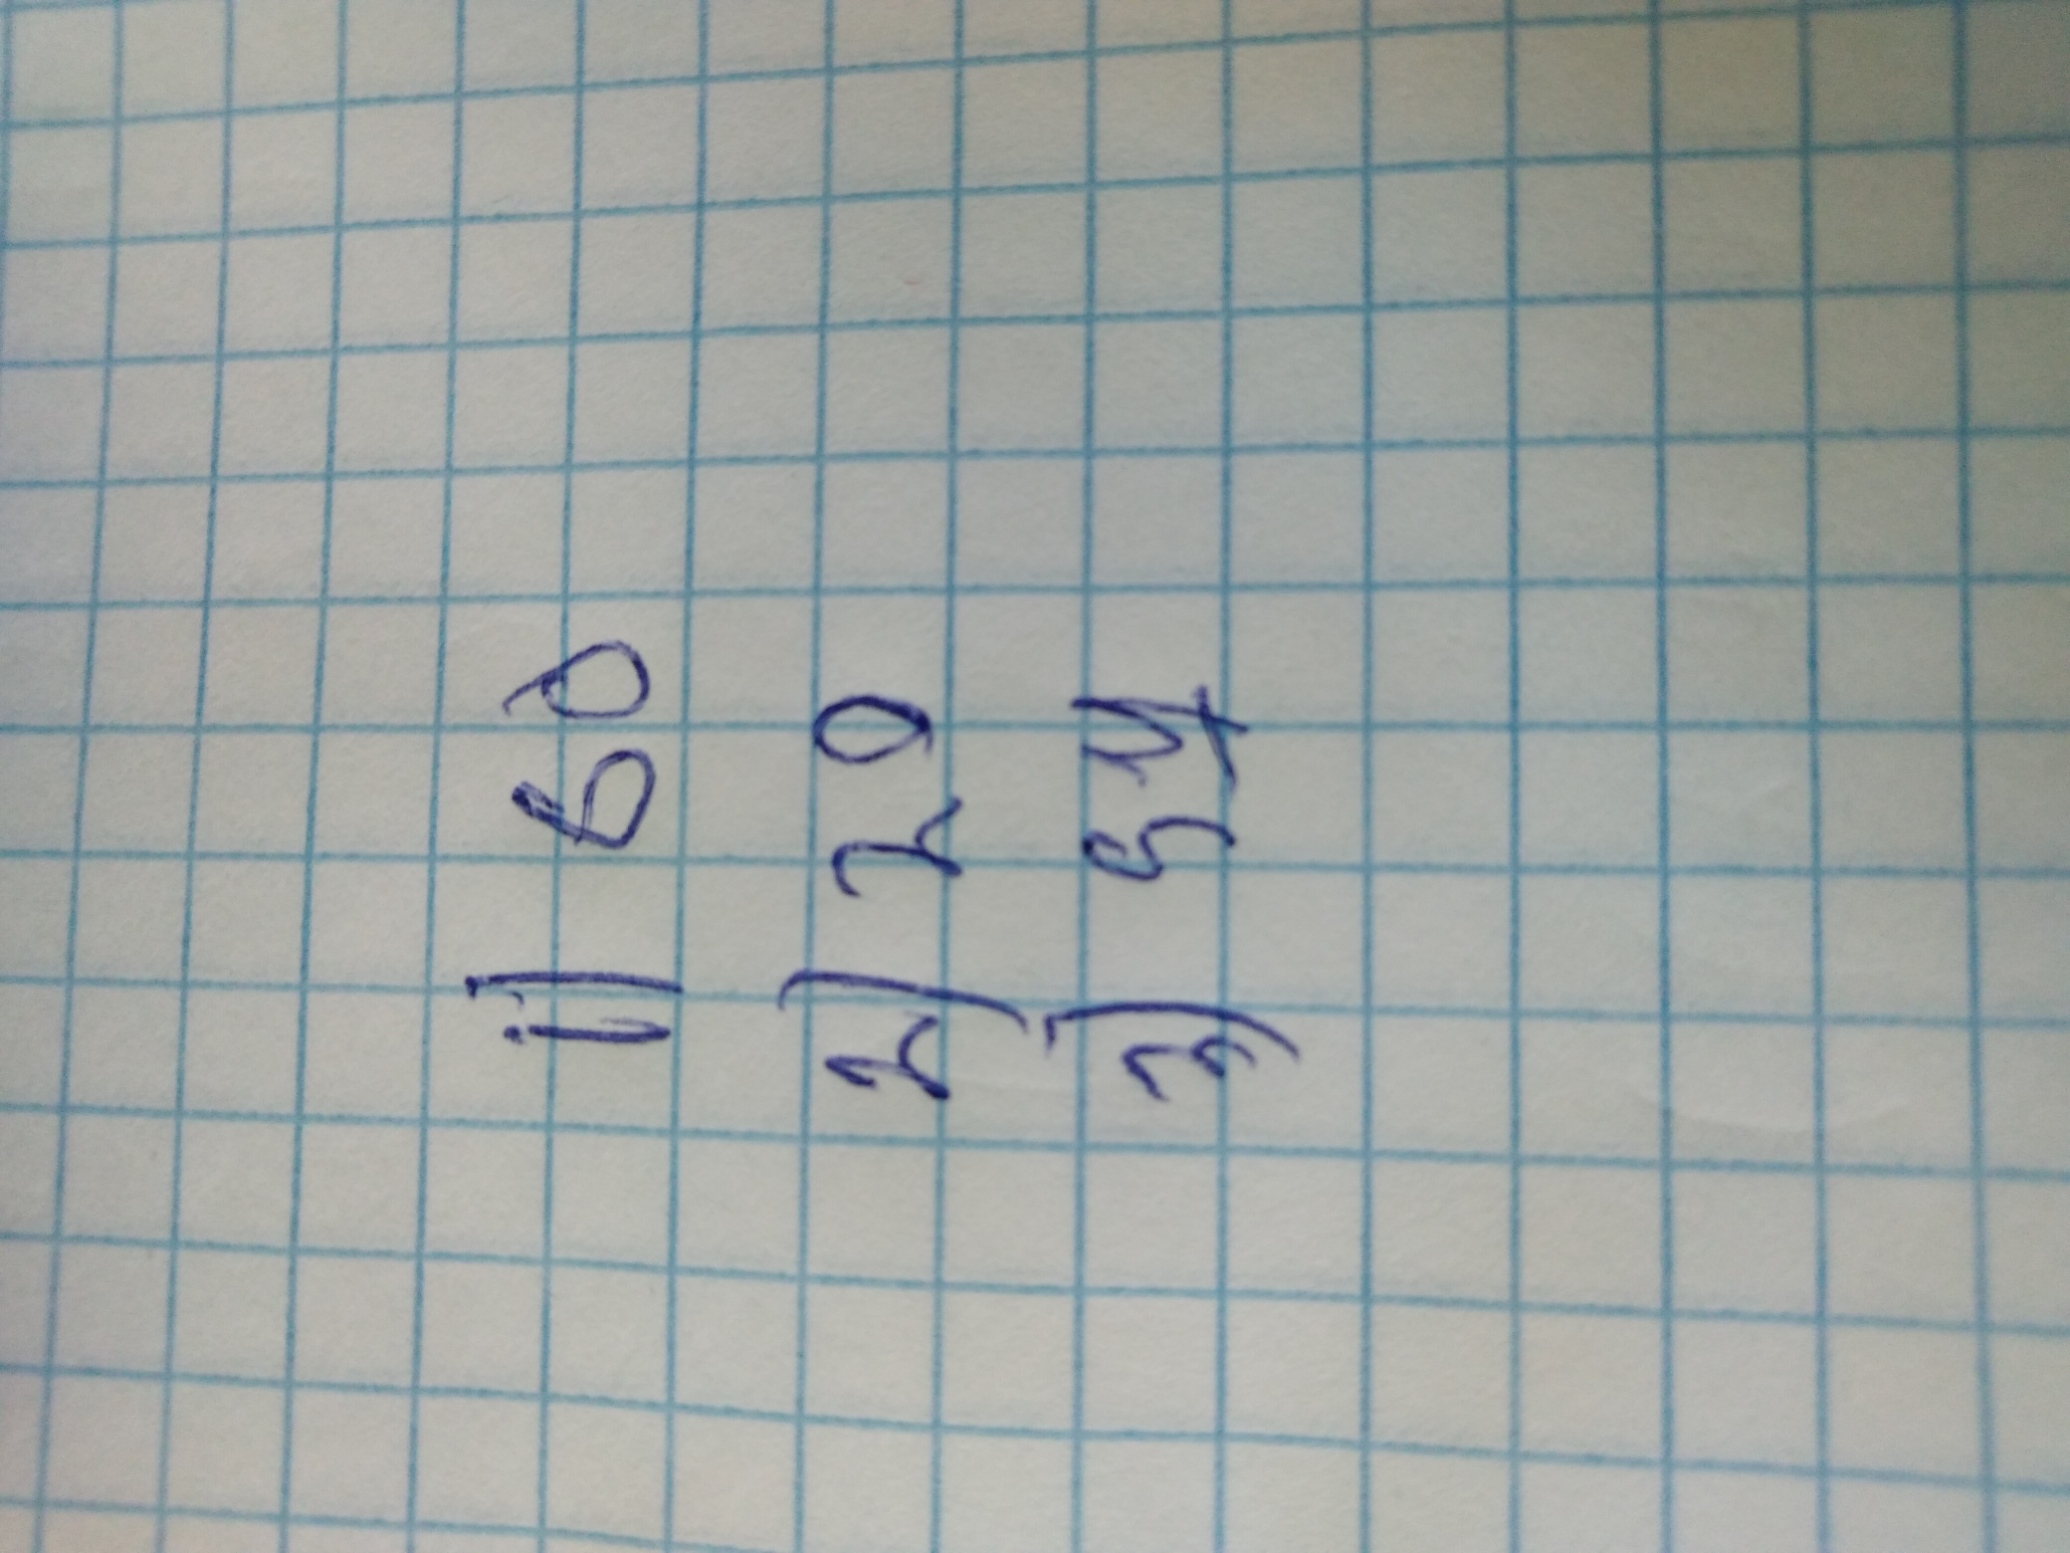 1) 60
2) 20
3) 54